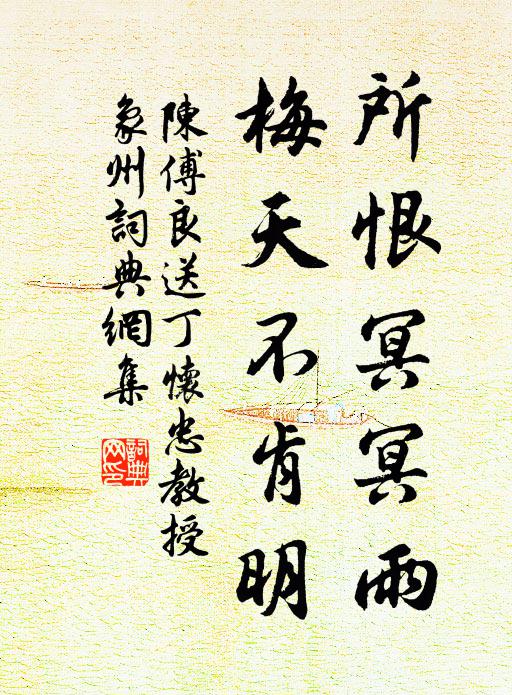 所恨冥冥雨
梅天不肯明
陳傅良送丁懷忠教授
象州詞典網集
詞典网印